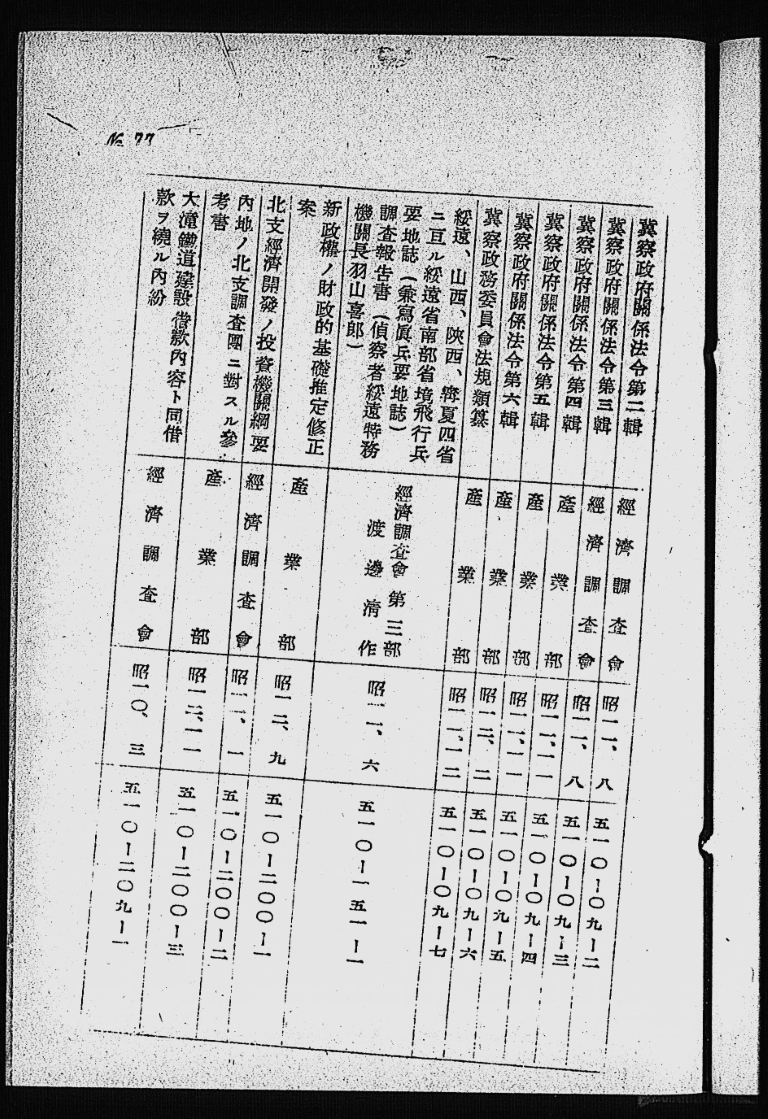 № 77
冀察政府關係法令第二輯
經濟調査會
昭一一、八
五一〇—〇九—二
冀察政府關係法令第三輯
經濟調査會
昭一一、八
五一〇—〇九—三
冀察政府關係法令第四輯
產業部
昭一一、一一
五一〇—〇九—四
冀察政府關係法令第五輯
產業部
昭一一、一一
五一〇—〇九—五
冀察政府關係法令第六輯
產業部
昭一二、二
五一〇—〇九—六
冀察政務委員會法規類纂
產業部
昭一一、一二
五一〇—〇九—七
綏遠、山西、陝西、寗夏四省
ニ亘ル綏遠省南部省境飛行兵
要地誌(兼寫眞兵要地誌)
調査報告書(偵察者綏遠特務
機關長羽山喜郎)
經濟調査會第三部
渡邊淸作
昭一一、六
五一〇—一五一—一
新政權ノ財政的基礎推定修正
案
產業部
昭一二、九
五一〇—二〇〇—一
北支經濟開發ノ投資機關綱要
經濟調査會
五一〇—二〇〇—二
內地ノ北支調査團ニ對スル參
考書
產業部
昭一二、一一
五一〇—二〇〇—三
大滬鐵道建設借款內容ト同借
款ヲ繞ル內紛
經濟調査會
昭一〇、三
五一〇—二〇九—一